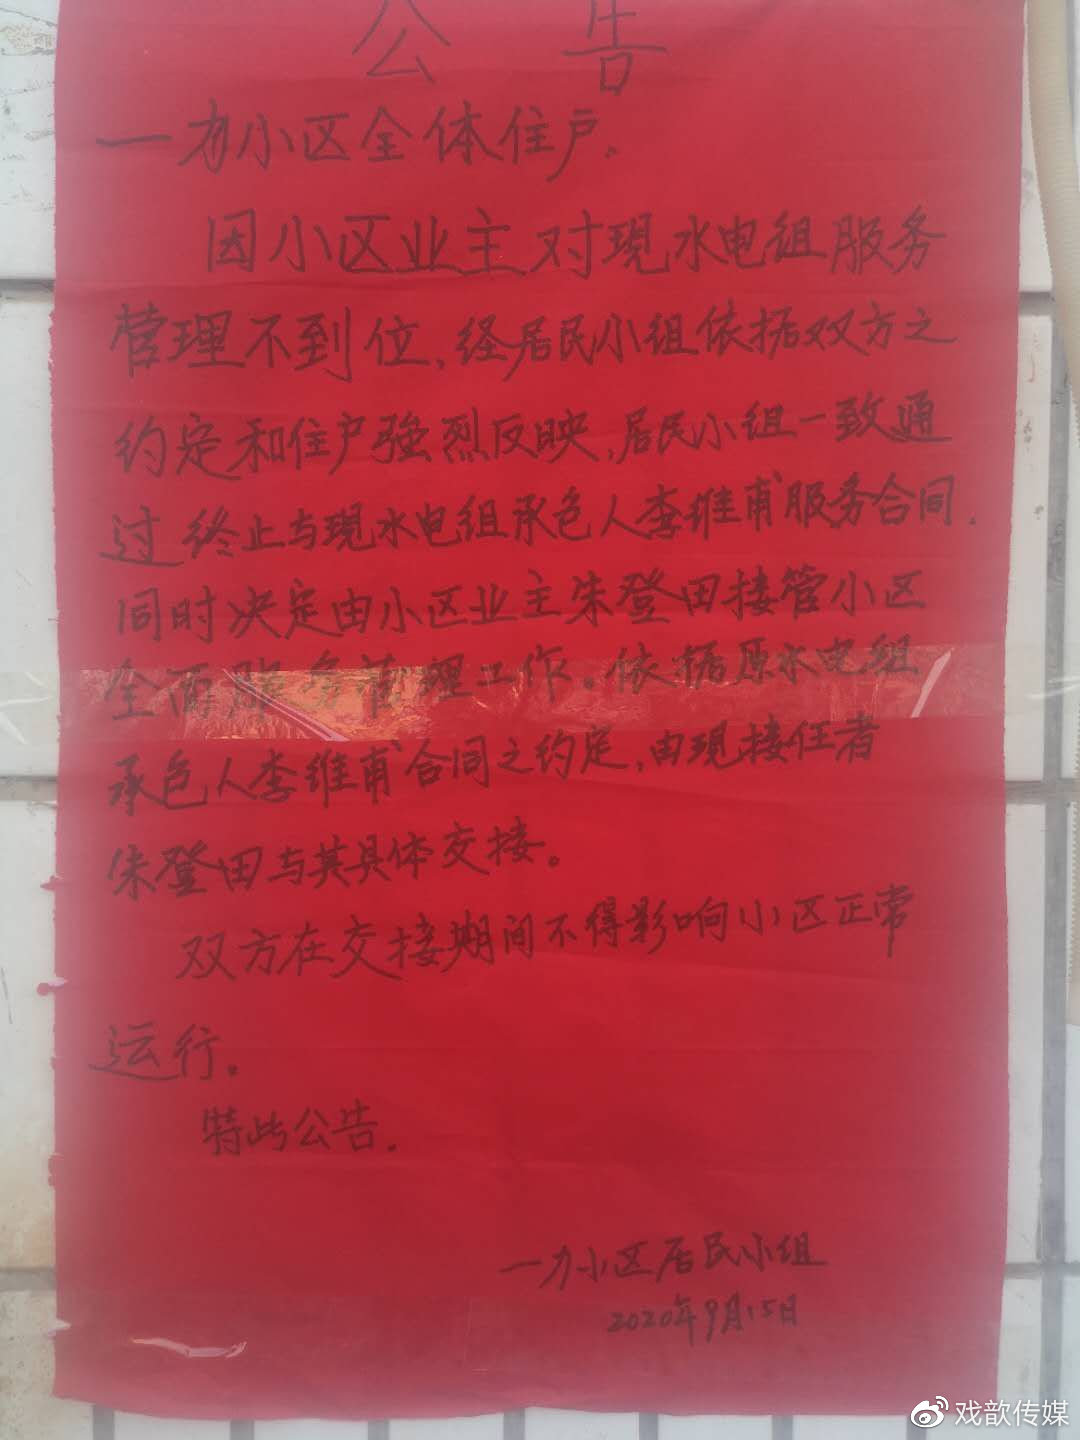 公告
一力小区全体住户.
因小区业主对现水电组服务
管理不到位,经居民小组依据双方之
约定和住户强烈反映,居民小组一致通
过终止与现水电组承包人李维甫服务合同.
同时决定由小区业主朱登田接管小区
全面服务管理工作。依据原水电组
承包人李维甫合同之约定,由现接任者
朱登田与其具体交接。
双方在交接期间不得影响小区正常
运行.
特此公告.
一力小区居民小组
2020年9月15日
戏歆传媒